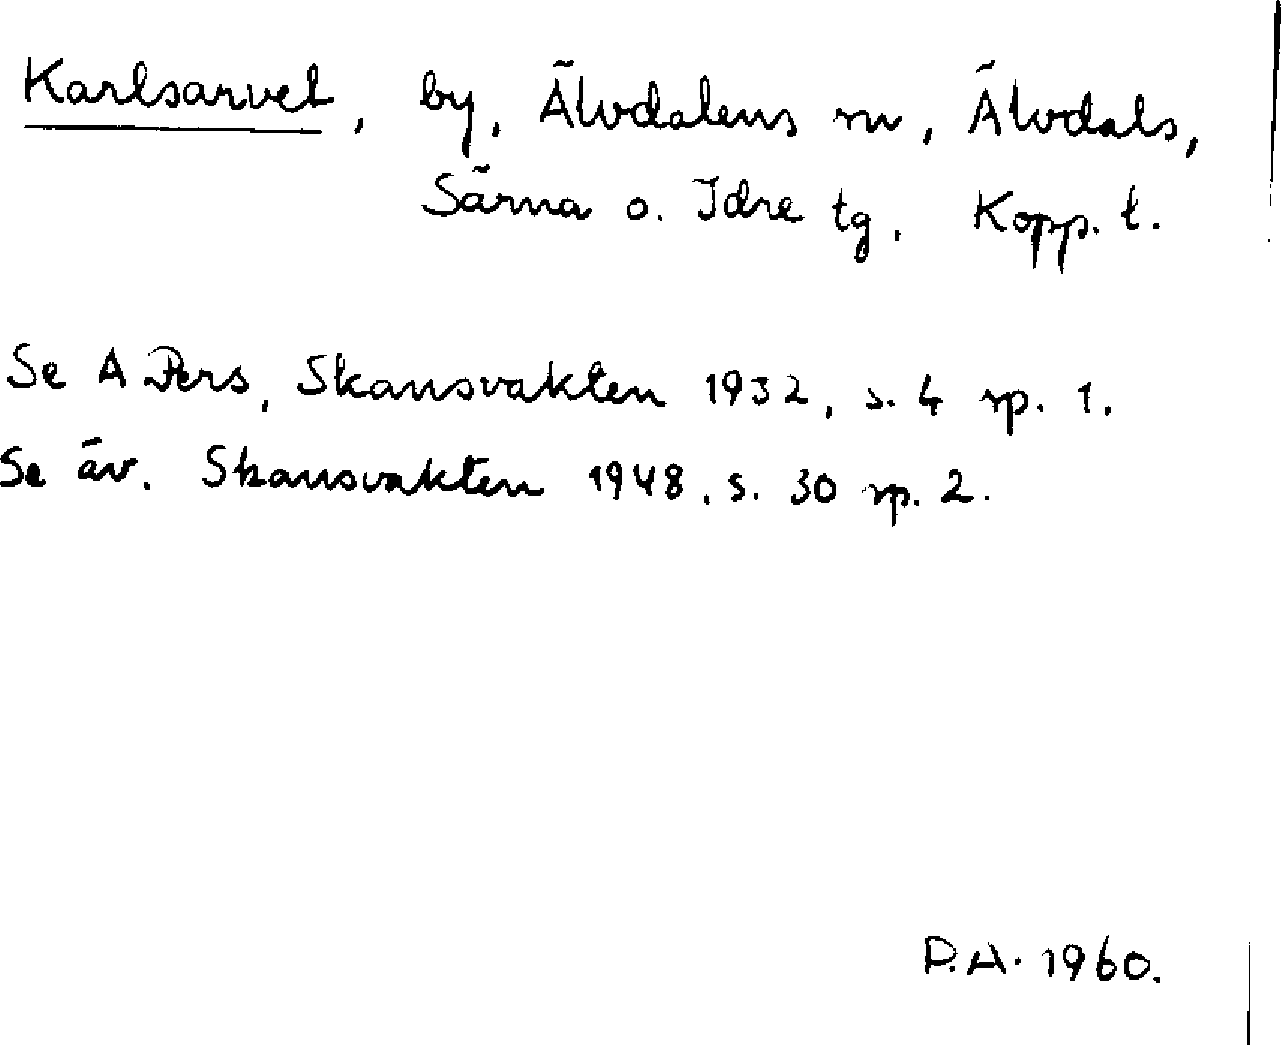 Karlsarvet, by, Älvdalens sn, Älvdals,
Särna o. Idre tg, Kopp. l.
Se A Pers, Skansvakten 1932, s. 4 sp. 1.
Se äv. Skansvakten 1948, s. 30 sp. 2.
P.A. 1960.